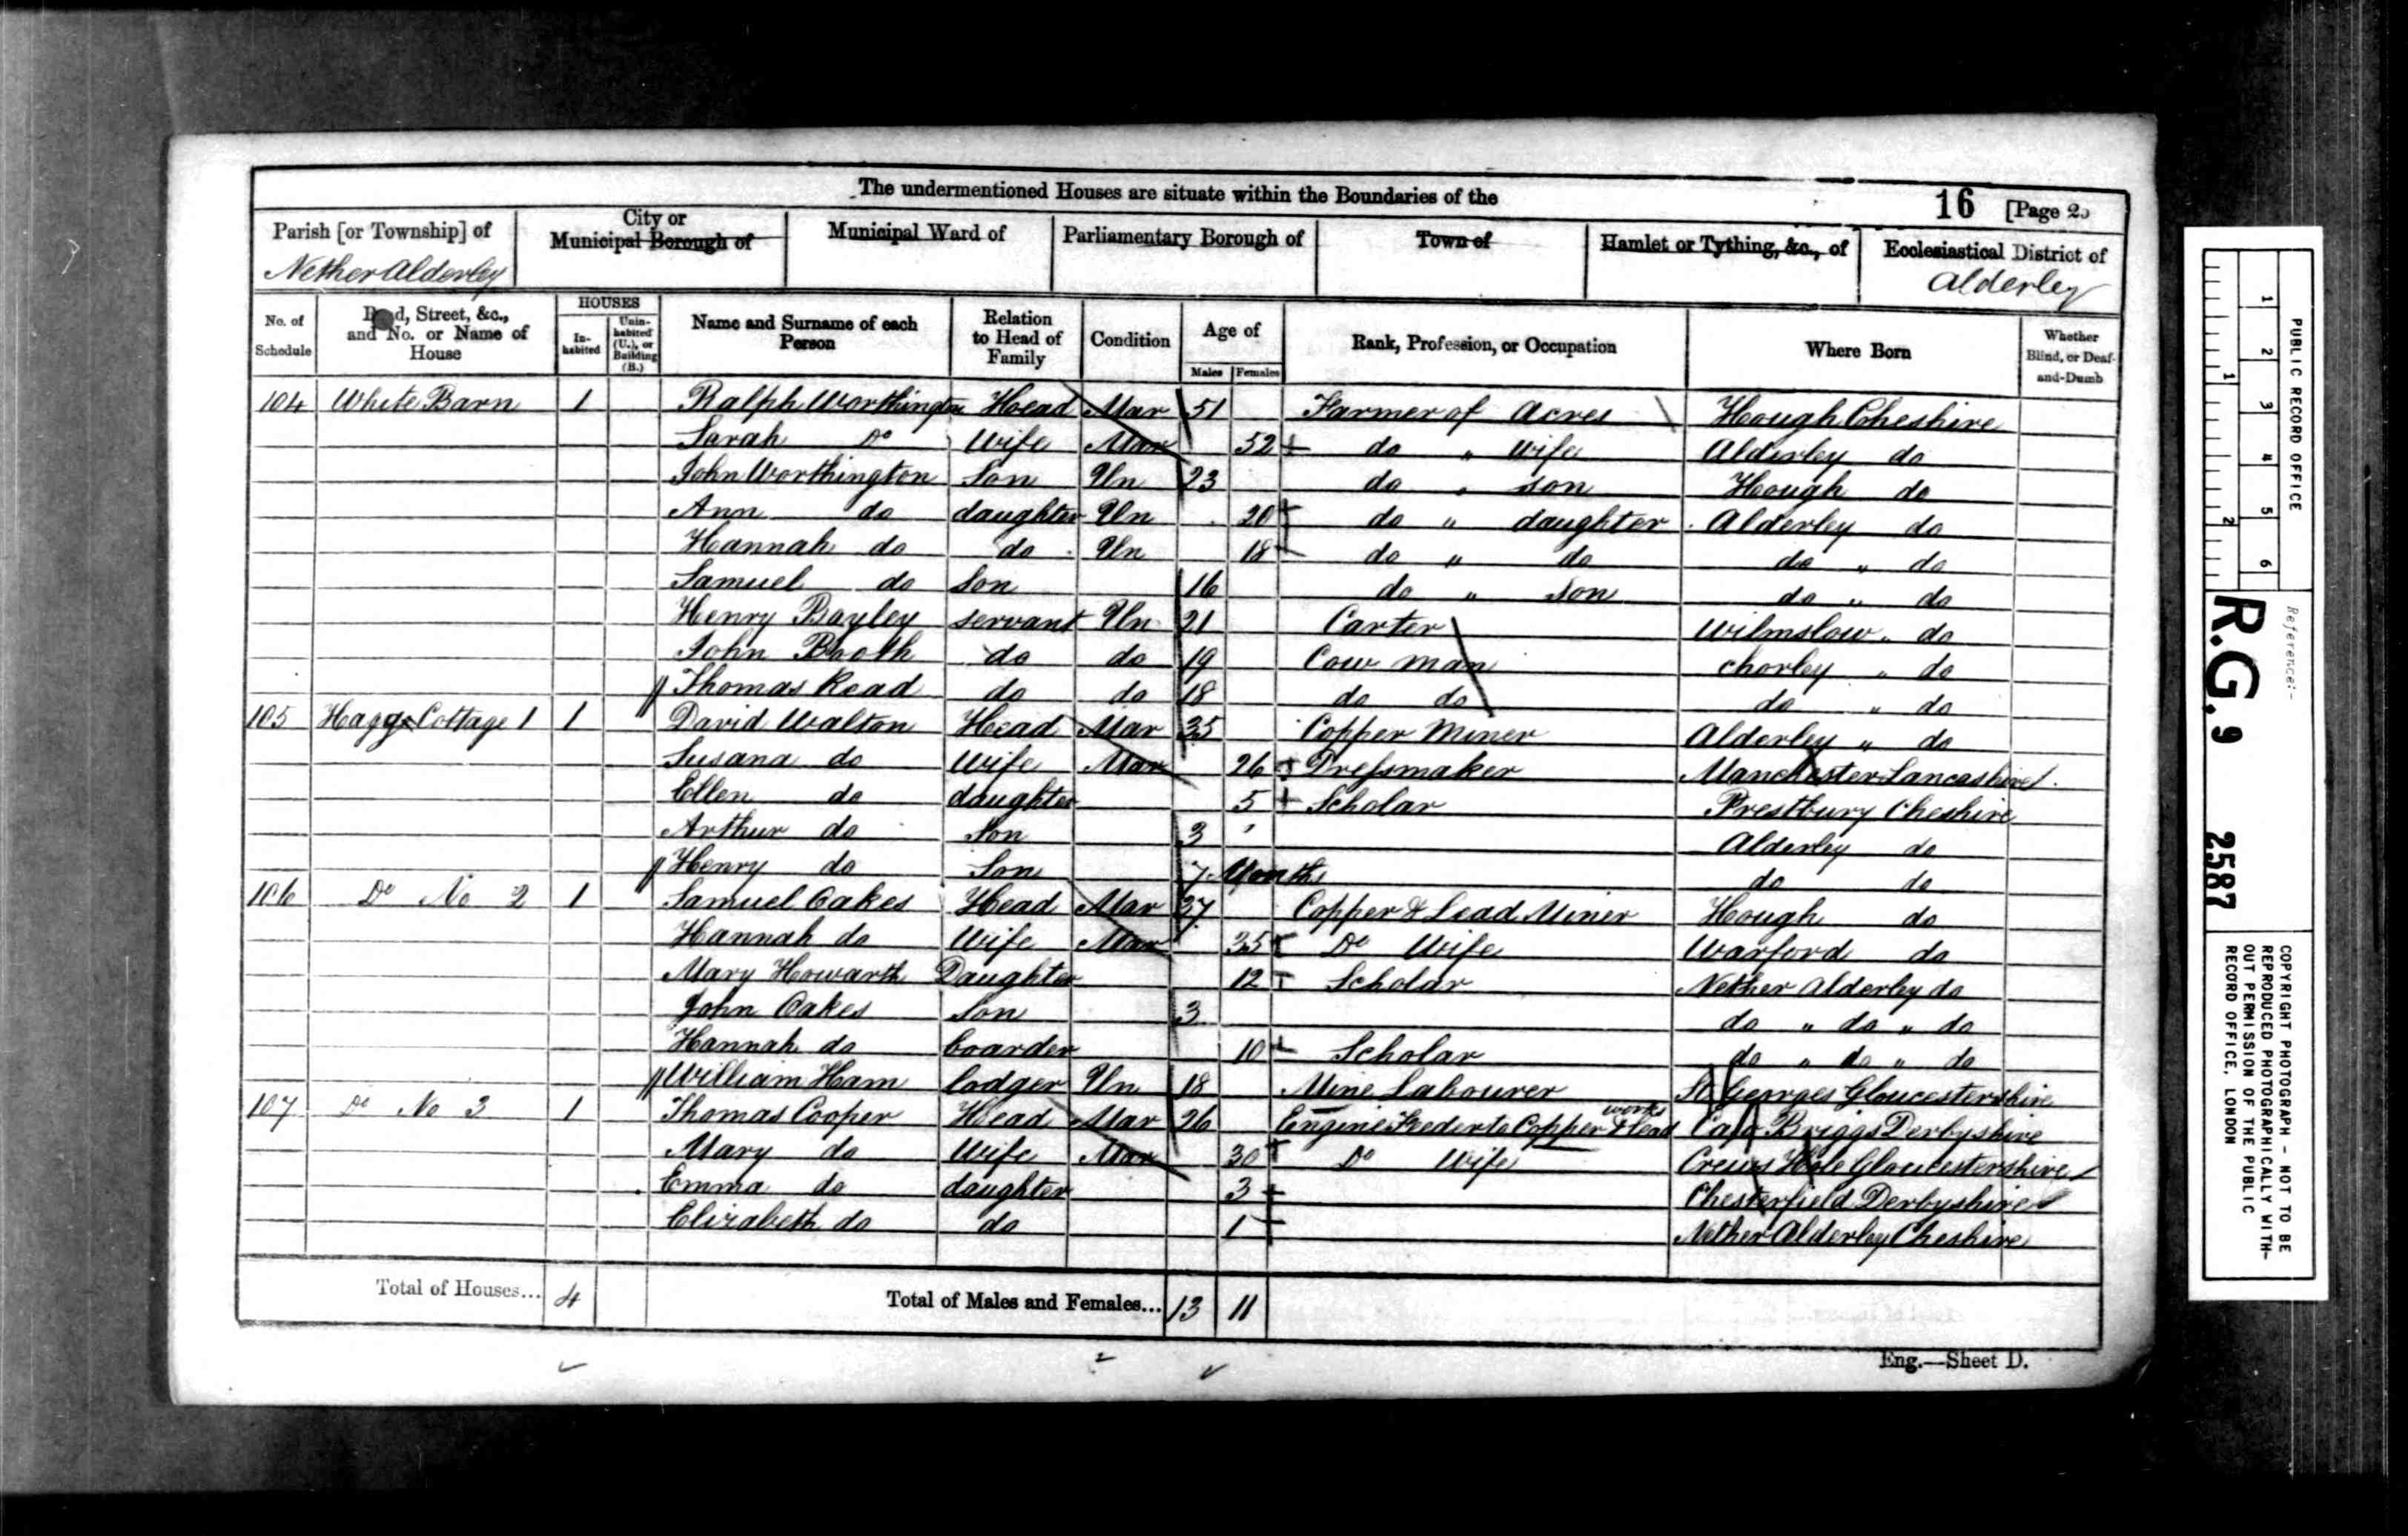 The undermentioned Houses are situate within the Boundaries of the
16 [Page 25
Parish [or Township] of Nether Alderley
City or Municipal Borough of
Municipal Ward of
Parliamentary Borough of
Town of
Hamlet or Tything, &c., of
Ecclesiastical District of Alderley
No. of Schedule
Road, Street, &c., and No. or Name of House
HOUSES
In-habited
Unin-habited (U.), or Building (B.)
Name and Surname of each Person
Relation to Head of Family
Condition
Age of
Males Females
Rank, Profession, or Occupation
Where Born
Whether Blind, or Deaf-and-Dumb
104 White Barn 1 Ralph Worthington Head Mar 51 Farmer of Acres Hough Cheshire
Sarah Do Wife Mar 52 do " Wife Alderley do
John Worthington Son Un 23 do " son Hough do
Ann do daughter Un 20 do " daughter Alderley do
Hannah do do Un 18 do " do do " do
Samuel do Son 16 do " Son do " do
Henry Bayley servant Un 21 Carter Wilmslow " do
John Booth do do 19 Cow man Chorley " do
Thomas Read do do 18 do do do " do
105 Haggs Cottage 1 1 David Walton Head Mar 35 Copper Miner Alderley " do
Susana do Wife Mar 26 Dressmaker Manchester Lancashire
Ellen do daughter 5 Scholar Prestbury Cheshire
Arthur do Son 3 Alderley do
Henry do Son 7 Months do do
106 Do No 2 1 Samuel Oakes Head Mar 27 Copper & Lead Miner Hough do
Hannah do Wife Mar 35 Do Wife Warford do
Mary Howarth Daughter 12 Scholar Nether Alderley do
John Oakes Son 3 do " do " do
Hannah do boarder 10 Scholar do " do " do
William Ham lodger Un 18 Mine Labourer St Georges Gloucestershire
107 Do No 3 1 Thomas Cooper Head Mar 26 Engine Feeder to Copper & Lead works Briggs Derbyshire
Mary do Wife Mar 30 Do Wife Crews Hole Gloucestershire
Emma do daughter 3 Chesterfield Derbyshire
Elizabeth do do 1 Nether Alderley Cheshire
Total of Houses... 4
Total of Males and Females... 13 11
Eng.—Sheet D.
PUBLIC RECORD OFFICE
1 2 3 4 5 6
1 2
Reference:-
R.G. 9 2587
COPYRIGHT PHOTOGRAPH - NOT TO BE
REPRODUCED PHOTOGRAPHICALLY WITH-
OUT PERMISSION OF THE PUBLIC
RECORD OFFICE, LONDON